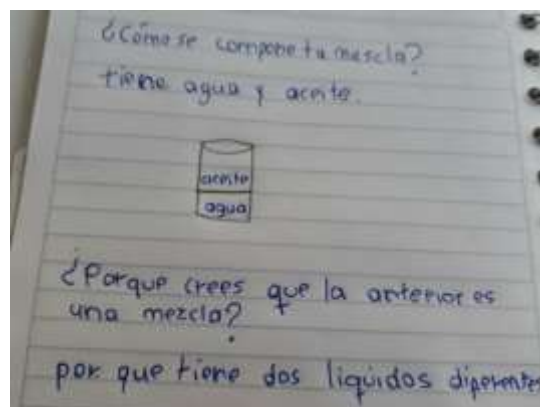 ¿Cómo se compone tu mescla?
tiene agua y aceite.
aceite
agua
¿Porque crees que la anterior es
una mezcla?
por que tiene dos liquidos diferentes